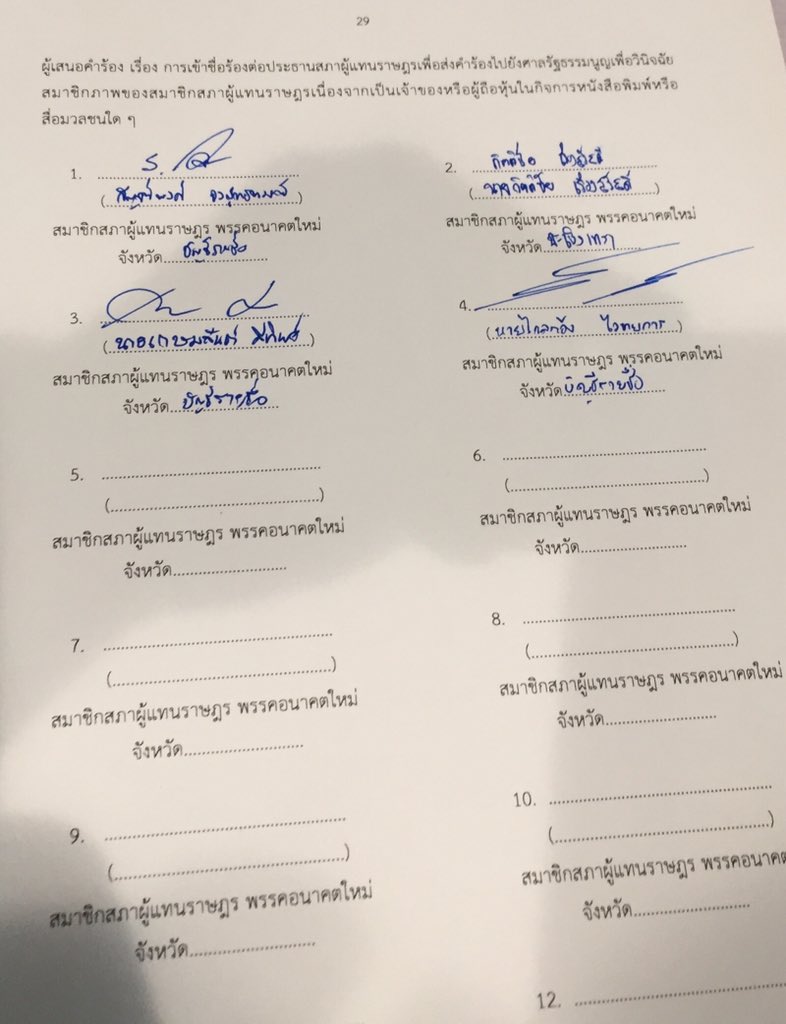 29
ผู้เสนอคำร้อง เรื่อง การเข้าชื่อร้องต่อประธานสภาผู้แทนราษฎรเพื่อส่งคำร้องไปยังศาลรัฐธรรมนูญเพื่อวินิจฉัย
สมาชิกภาพของสมาชิกสภาผู้แทนราษฎรเนื่องจากเป็นเจ้าของหรือผู้ถือหุ้นในกิจการหนังสือพิมพ์หรือ
สื่อมวลชนใด ๆ
1.
สมาชิกสภาผู้แทนราษฎร พรรคอนาคตใหม่
จังหวัด บัญชีรายชื่อ
2.
(นายกิตติชัย เรืองสวัสดิ์)
สมาชิกสภาผู้แทนราษฎร พรรคอนาคตใหม่
จังหวัด ฉะเชิงเทรา
3.
(นายเกษมสันต์ มีทิพย์)
สมาชิกสภาผู้แทนราษฎร พรรคอนาคตใหม่
จังหวัด บัญชีรายชื่อ
4.
(นายไกลก้อง ไวทยการ)
สมาชิกสภาผู้แทนราษฎร พรรคอนาคตใหม่
จังหวัด บัญชีรายชื่อ
5.
สมาชิกสภาผู้แทนราษฎร พรรคอนาคตใหม่
จังหวัด
6.
สมาชิกสภาผู้แทนราษฎร พรรคอนาคตใหม่
จังหวัด
7.
สมาชิกสภาผู้แทนราษฎร พรรคอนาคตใหม่
จังหวัด
8.
สมาชิกสภาผู้แทนราษฎร พรรคอนาคตใหม่
จังหวัด
9.
สมาชิกสภาผู้แทนราษฎร พรรคอนาคตใหม่
จังหวัด
10.
สมาชิกสภาผู้แทนราษฎร พรรคอนาคต
จังหวัด
12.